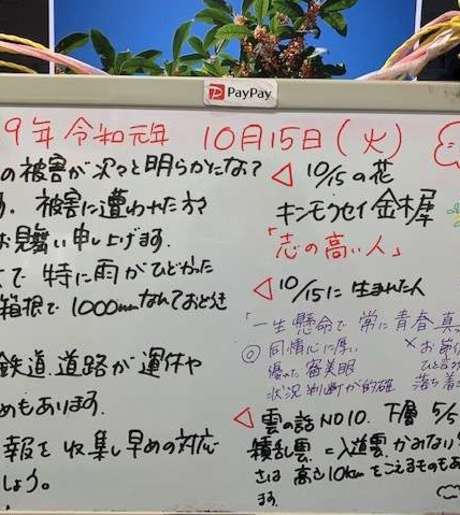 PayPay
9年 令和元年 10月15日(火)
の被害が次々と明らかになって
す. 被害に遭われた方々
お見舞い申し上げます.
で 特に雨がひどかった
箱根で 1000mmなんておどろき
鉄道. 道路が 運休や
めもあります.
報を 収集し早めの対応
しょう。
◁ 10/15の花
キンモクセイ 金木犀
「志の高い人」
◁ 10/15に 生まれた人
「一生懸命で 常に青春真っ
◎ 同情心に厚い
優れた 審美眼
状況 判断が的確
× お節
ひと言
落ち着
◁ 雲の話 NO10. 下層 5/5
積乱雲 = 入道雲. かみなり
さは 高さ10kmをこえるものもあ
ます.